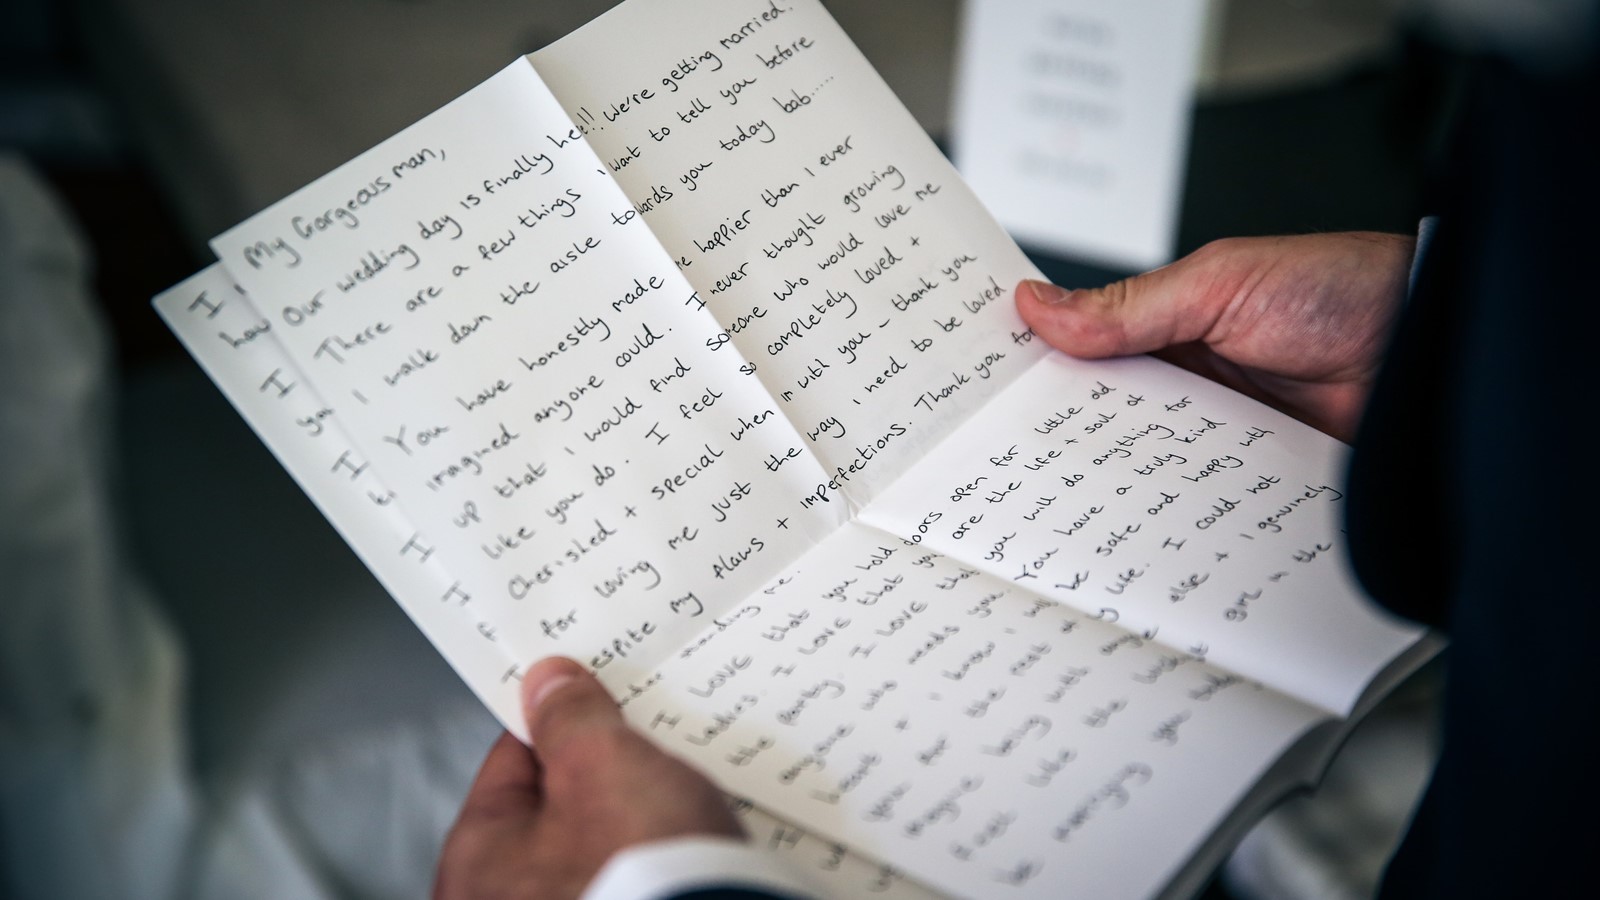 My Gorgeous man,
Our wedding day is finally here!! We're getting married!
There are a few things I want to tell you before
I walk down the aisle towards you today bab.....
You have honestly made me happier than I ever
imagined anyone could. I never thought growing
up that I would find someone who would love me
like you do. I feel so completely loved +
cherished + special when I'm with you - thank you
for loving me just the way I need to be loved
despite my flaws + imperfections. Thank you for
me.
I LOVE that you hold doors open for little old
ladies. I LOVE that you are the life + soul of
the party. I LOVE that you will do anything for
anyone who needs you. You have a truly kind
heart + I know I will be safe and happy with
you for the rest of my life. I could not
imagine being with anyone else + I genuinely
feel like the luckiest girl in the
be marrying you today
I
how
I
you
I
I
I
I